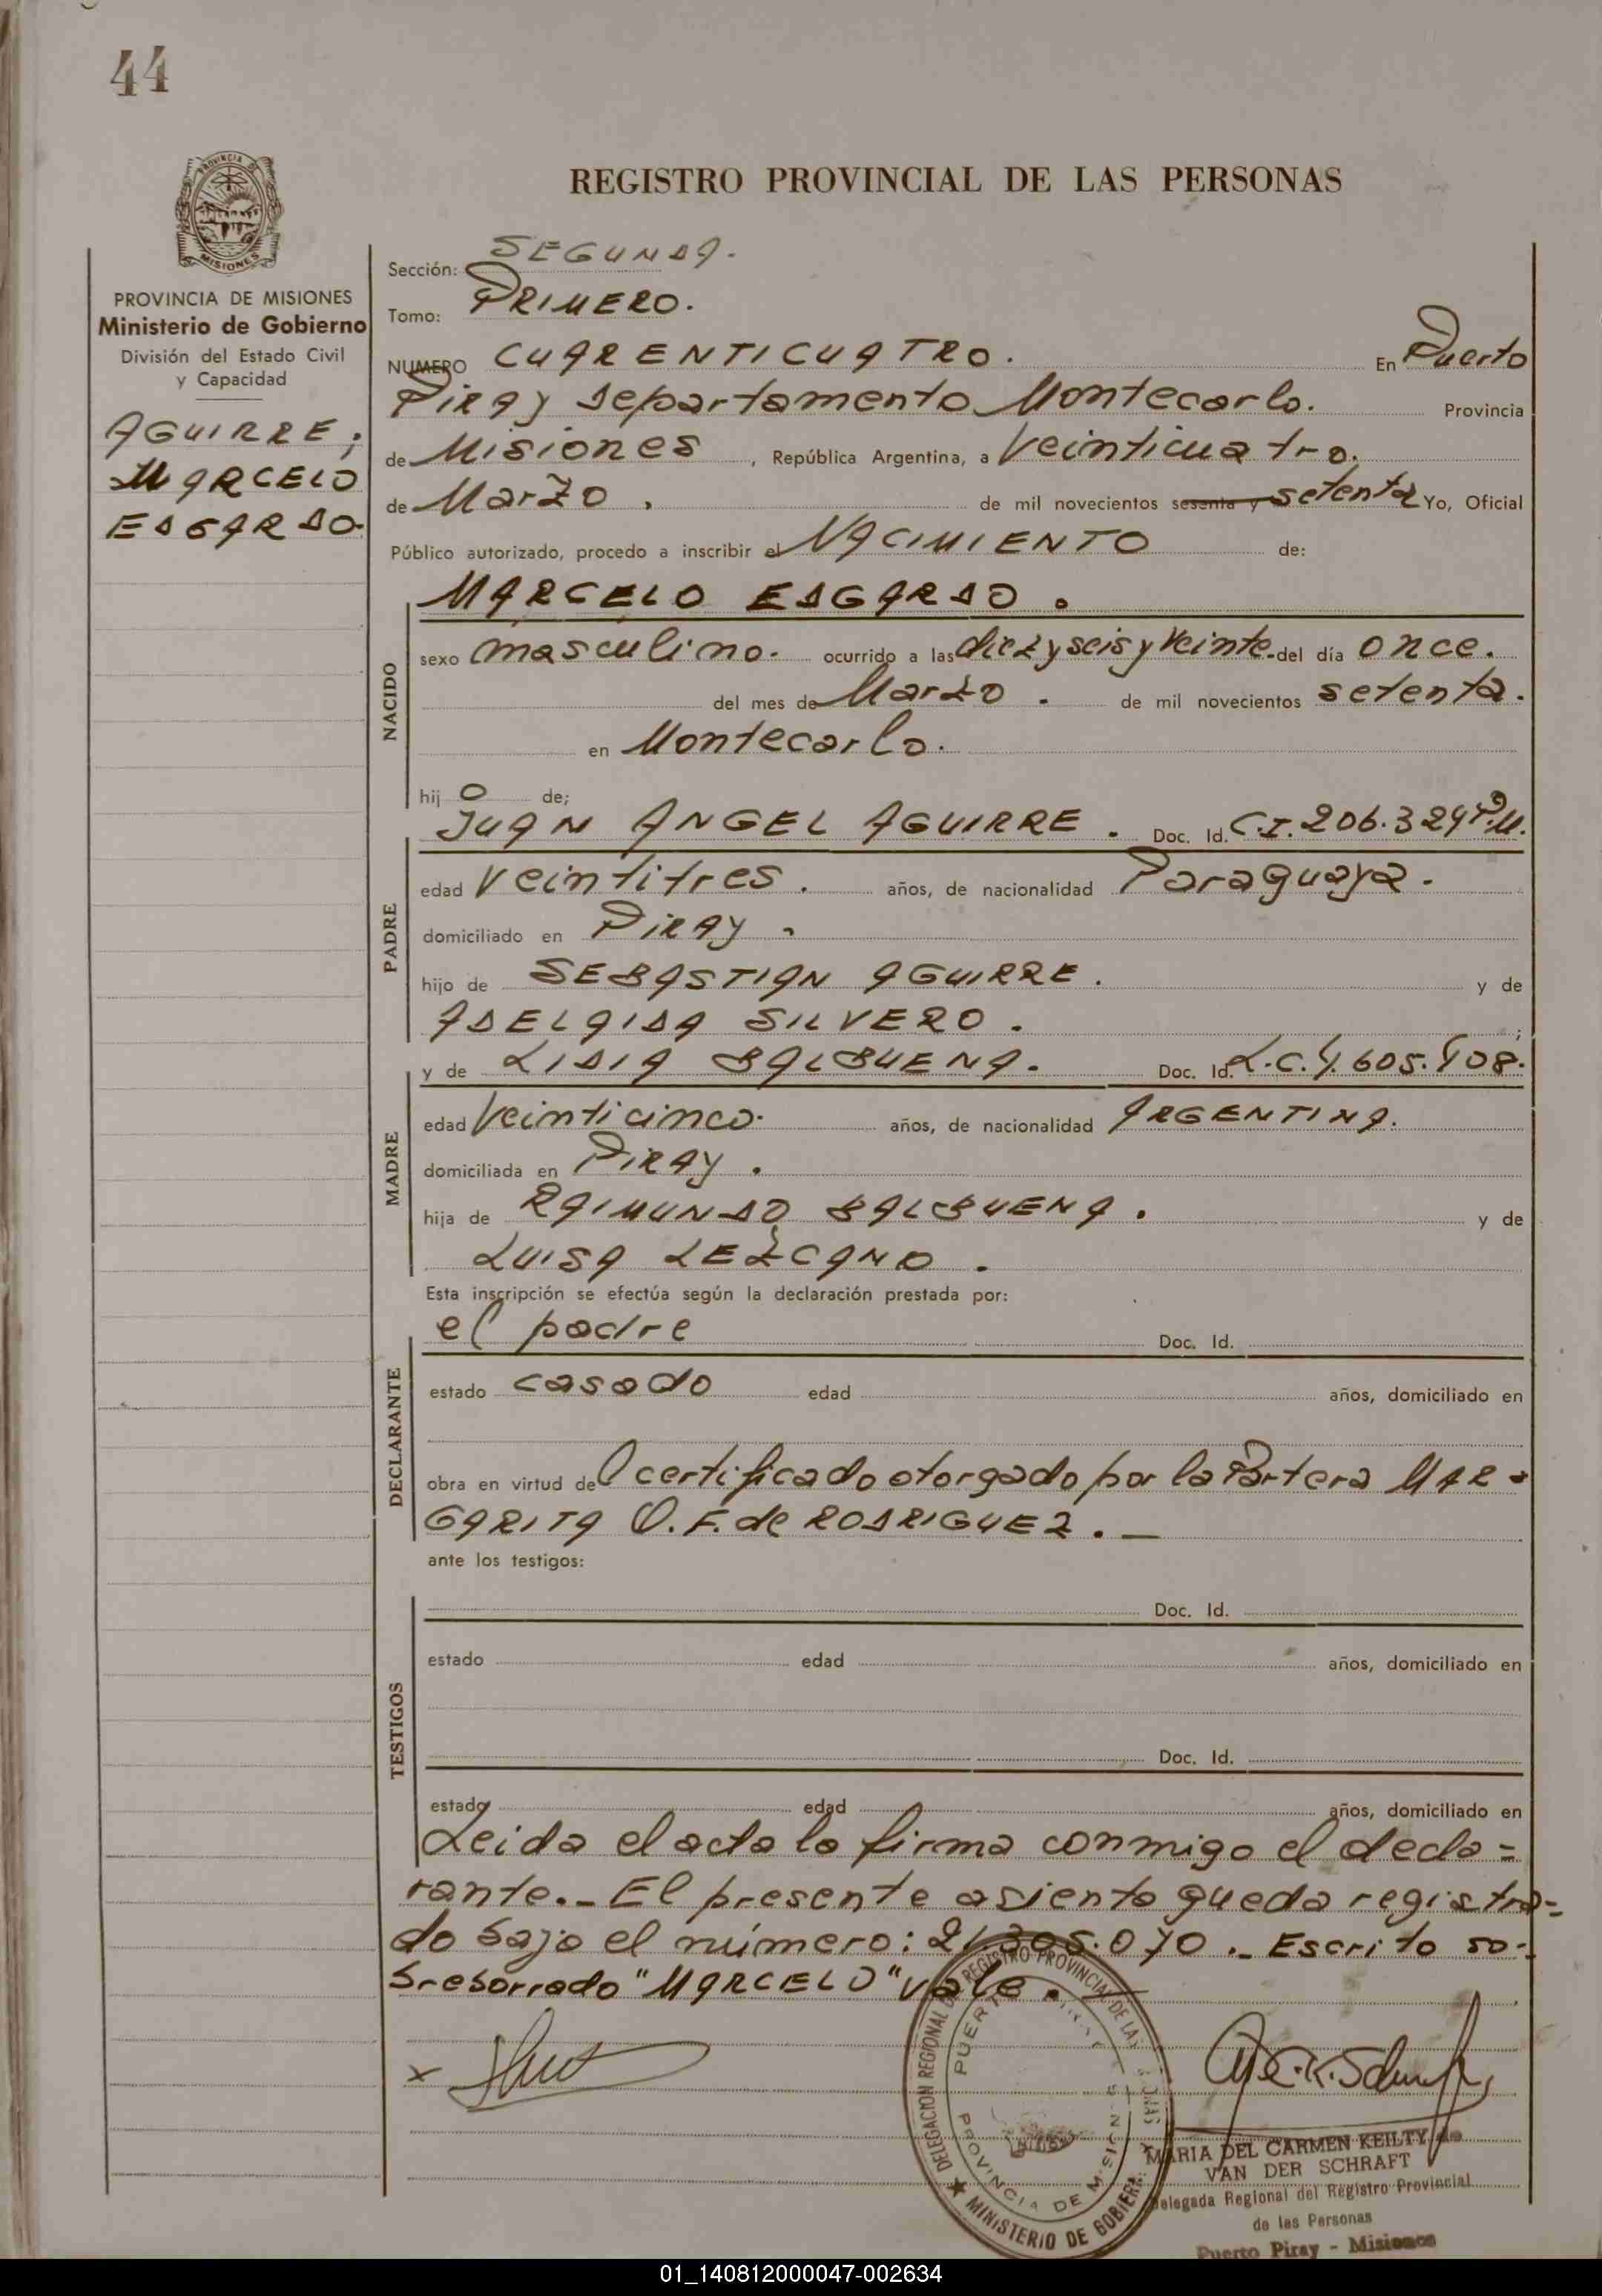 44
REGISTRO PROVINCIAL DE LAS PERSONAS
MISIONES
PROVINCIA DE MISIONES
Ministerio de Gobierno
División del Estado Civil
y Capacidad
AGUIRRE;
MARCELO
EDGARDO.
Sección: SEGUNDA.
Tomo: PRIMERO.
NUMERO CUARENTICUATRO. En Puerto
Piray departamento Montecarlo. Provincia
de Misiones, República Argentina, a Veinticuatro.
de Marzo. de mil novecientos sesenta y setenta Yo, Oficial
Público autorizado, procedo a inscribir el NACIMIENTO de:
MARCELO EDGARDO.
NACIDO
sexo masculino. ocurrido a las diez y seis y Veinte. del día once.
del mes de Marzo. de mil novecientos setenta.
en Montecarlo.
hij o de;
JUAN ANGEL AGUIRRE. Doc. Id. C.I. 206.324
PADRE
edad Veintitres. años, de nacionalidad Paraguaya.
domiciliado en PIRAY.
hijo de SEBASTIAN AGUIRRE. y de
ADELAIDA SILVERO. ;
y de LIDIA BALBUENA. Doc. Id. L.C.
MADRE
edad Veinticinco. años, de nacionalidad ARGENTINA.
domiciliada en PIRAY.
hija de RAIMUNDO BALBUENA. y de
LUISA LEZCANO.
Esta inscripción se efectúa según la declaración prestada por:
el padre Doc. Id.
DECLARANTE
estado casado edad años, domiciliado en
obra en virtud de certificado otorgado por la Partera MAR=
GARITA O.F. de RODRIGUEZ. —
ante los testigos:
Doc. Id.
TESTIGOS
estado edad años, domiciliado en
Doc. Id.
estado edad años, domiciliado en
Leida el acta la firma conmigo el decla=
rante.- El presente asiento queda registra=
do bajo el número: .- Escrito so=
breborrado "MARCELO" vale.
DELEGACION REGIONAL DEL REGISTRO PROVINCIAL DE LAS PERSONAS
PUERTO
PROVINCIA DE MISIONES
MINISTERIO DE GOBIERNO
MARIA DEL CARMEN KEILTY de
VAN DER SCHRAFT
Delegada Regional del Registro Provincial
de las Personas
Puerto Piray - Misiones
01_140812000047-002634